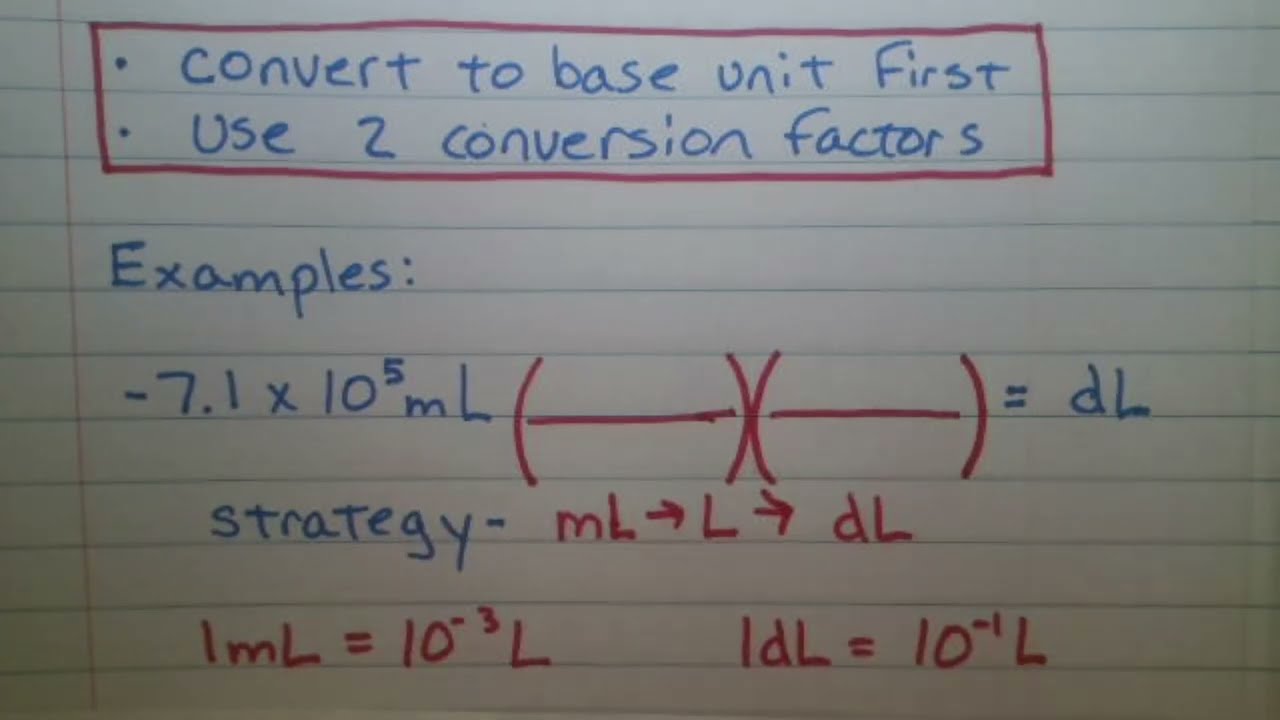 • convert to base unit first
• Use 2 conversion factors
Examples:
-7.1 x 10⁵ mL (———)(———) = dL
strategy - mL → L → dL
1mL = 10⁻³ L 1dL = 10⁻¹ L